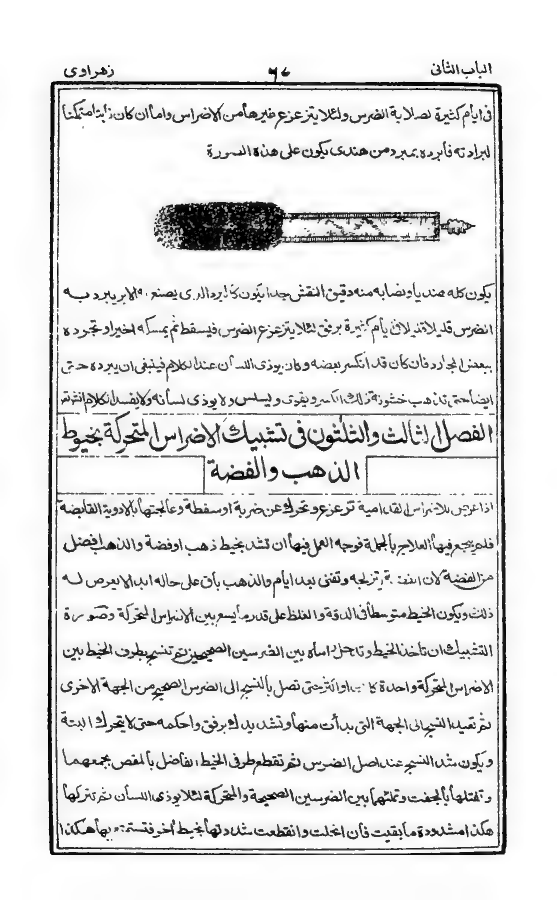 الباب الثانى ٦٧ زهراوى
فى ايام كثيرة لصلابة الضرس ولئلا يتزعزع غيرها من الاضراس واما ان كان نابتا متمكنا
لبرادته فأبرده بمبرد من هندى يكون على هذه الصورة
يكون كله هنديا ونصابه منه دقيق النقش جدا يكون كالمبرد الذى يصنع به الابر يبرد به
الضرس قليلا قليلا فى ايام كثيرة برفق لئلا يتزعزع الضرس فيسقط ثم يمسكه اخيرا وتجرده
ببعض المجارد فان كان قد انكسر بعضه وكان يوذى اللسان عند الكلام فينبغى ان يبرده حتى
ايضا حتى تذهب خشونة ذلك الكسر ويستوى ويسلس ولا يوذى لسانه ولا يفسد الكلام
الفصل الثالث والثلثون فى تشبيك الاضراس المتحركة بخيوط
الذهب والفضة
اذا عرض للاضراس القدامية تزعزع وتحرك عن ضربة او سقطة وعالجتها بالادوية القابضة
فلم ينجع فيها العلاج بالجملة فوجه العمل فيها ان تشد بخيط ذهب او فضة والذهب افضل
من الفضة لان الفضة تزنجر وتفنى بعد ايام والذهب باق على حاله ابدا لا يعرض له
ذلك ويكون الخيط متوسطا فى الدقة والغلظ على قدر ما يسع بين الاضراس المتحركة وصورة
التشبيك ان تاخذ الخيط وتدخل راسه بين الضرسين الصحيحين ثم تنسج بطرف الخيط بين
الاضراس المتحركة واحدة كانت او اكثر حتى تصل بالنسج الى الضرس الصحيح من الجهة الاخرى
ثم تعيد النسج الى الجهة التى بدأت منها وتشد يدك برفق واحكمه حتى لا يتحرك البتة
ويكون شد النسج عند اصل الضرس ثم تقطع طرفى الخيط الفاضل بالمقص بجمعهما
وتفتلها بالجفت وتلثهما بين الضرسين الصحيحة والمتحركة لئلا يوذى اللسان ثم تتركها
هكذا مشدودة ما بقيت فان انحلت وانقطعت شددتها بخيط اخر فتستمتع بها هكذا